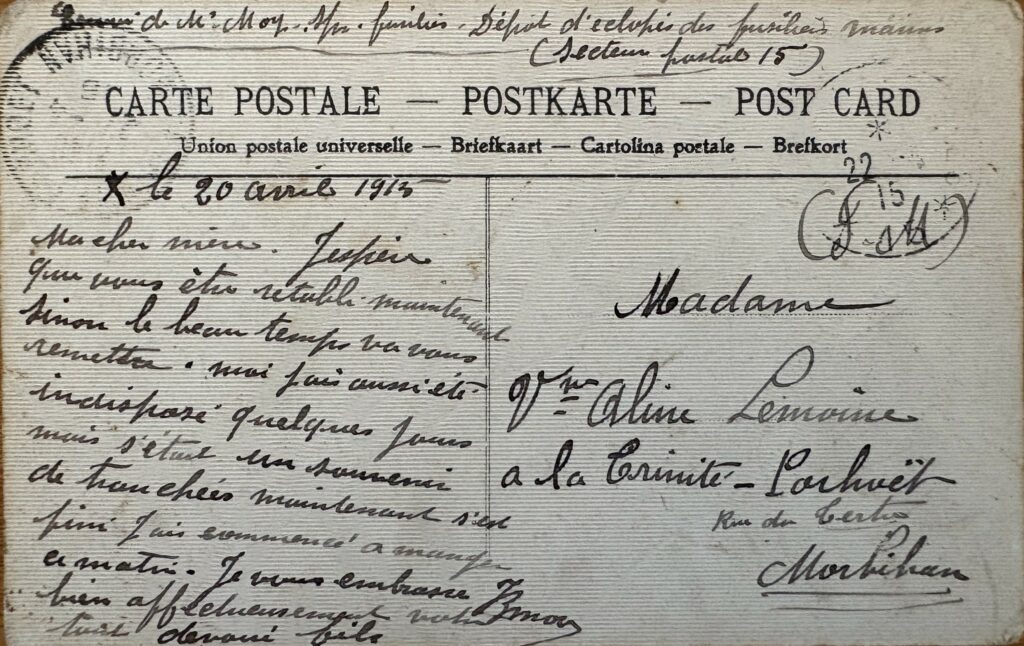 de Mr Moy. fusiliers Dépot d'eclopés des fusiliers marins
(Secteur postal 15)
CARTE POSTALE — POSTKARTE — POST CARD
Union postale universelle — Briefkaart — Cartolina postale — Brefkort
X le 20 avril 1915
Ma cher mère. Jespère
que vous ètre retablie maintenant
sinon le beau temps va vous
remettre. moi jais aussi été
indisposé quelques jours
mais s'était un souvenir
de tranchées maintenant s'est
fini jais commencé a manger
ce matin. Je vous embrasse
bien affectueusement votre
tout devoué fils
22
15
(F. M)
Madame
Vve Aline Lemoine
a la Trinité-Porhoët
Rue du Tertre
Morbihan